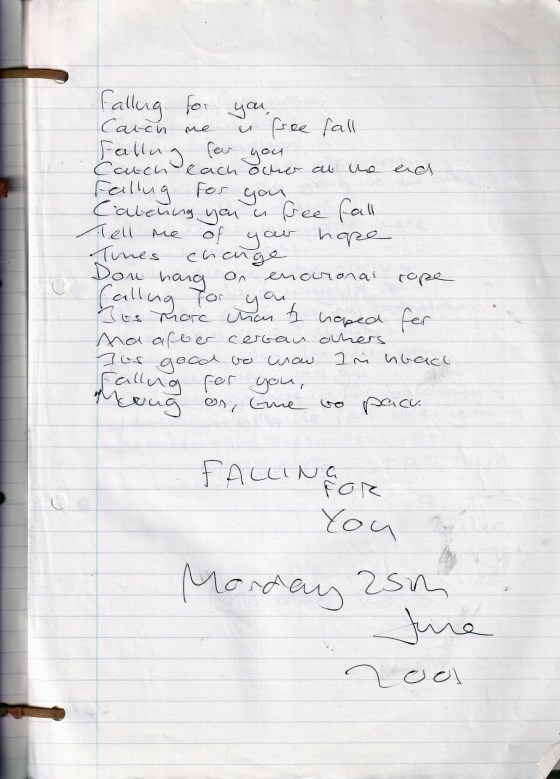 Falling for you,
Catch me in free fall
Falling for you
Catch each other at the end
Falling for you
Catching you in free fall
Tell me of your hope
Times change
Dont hang on emotional rope
Falling for you,
Its more than I hoped for
And after certain others
Its good to know I'm intact
Falling for you,
Moving on, time to pack
FALLING
FOR
YOU
Monday 25th
June
2001